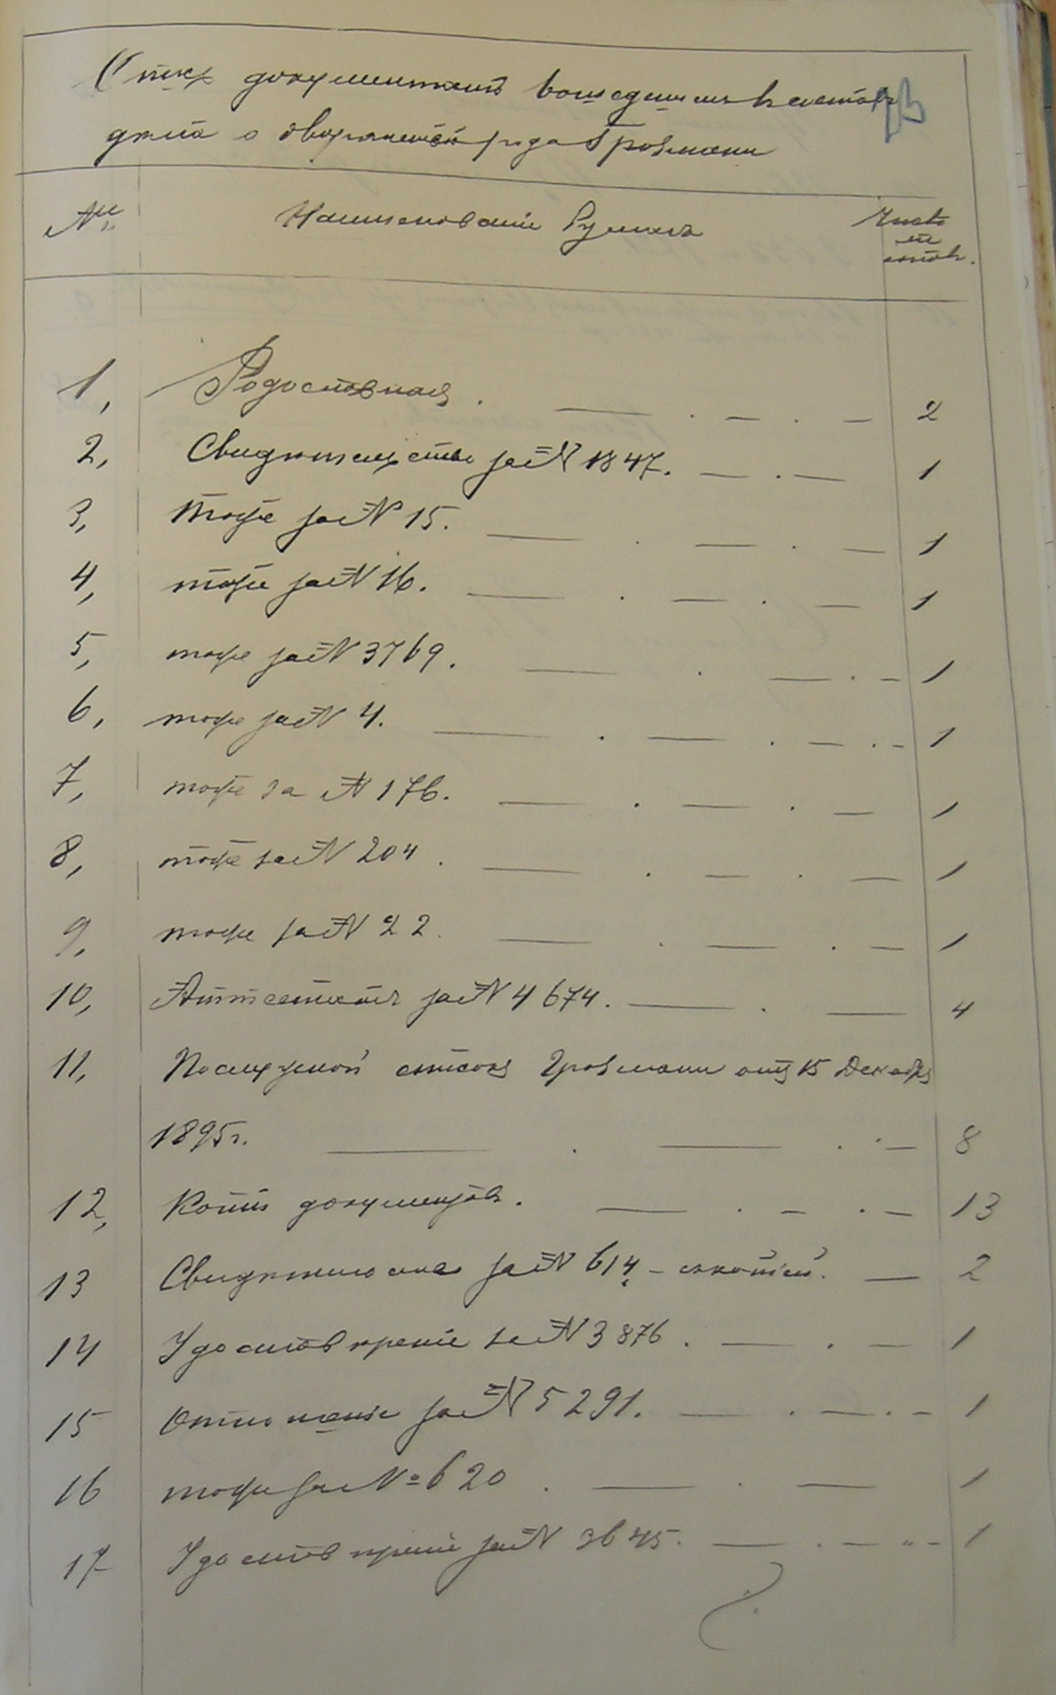 Опись документамъ вошедшимъ въ составъ
дѣла о дворянствѣ рода Гросманъ
№№ Наименованіе бумагъ Число листовъ.
1, Родословная. 2
2, Свидѣтельство за № 1847. 1
3, Тоже за № 15. 1
4, тоже за № 16. 1
5, тоже за № 3769. 1
6, тоже за № 4. 1
7, тоже за № 176. 1
8, тоже за № 204. 1
9, тоже за № 22. 1
10, Аттестатъ за № 4674. 4
11, Послужной списокъ отъ 15 Декабря
1895 г. 8
12, Копіи документовъ. 13
13 Свидѣтельство за № 614 – съ копіей. 2
14 Удостовѣреніе за № 3876. 1
15 Отношеніе за № 5291. 1
16 тоже за № 620. 1
17 Удостовѣреніе за № 3645. 1